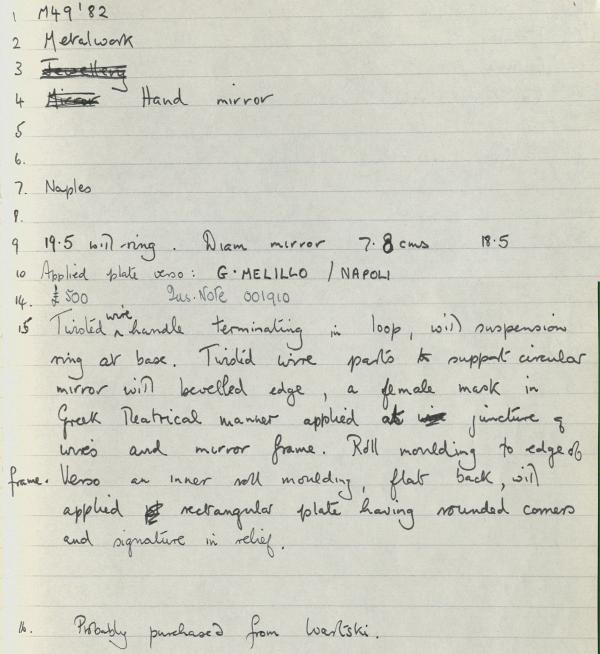 1 M49'82
2 Metalwork
3 Jewellery
4 Mirror Hand mirror
5
6.
7. Naples
8.
9 19.5 with ring. Diam mirror 7.8 cms 18.5
10 Applied plate verso: G·MELILLO / NAPOLI
14. £500 Ins. Note 001910
15 Twisted wire handle terminating in loop, with suspension
ring at base. Twisted wire parts to support circular
mirror with bevelled edge, a female mask in
Greek Theatrical manner applied at juncture of
wires and mirror frame. Roll moulding to edge of
frame. Verso an inner roll moulding, flat back, with
applied rectangular plate having rounded corners
and signature in relief.
16. Probably purchased from Wartski.